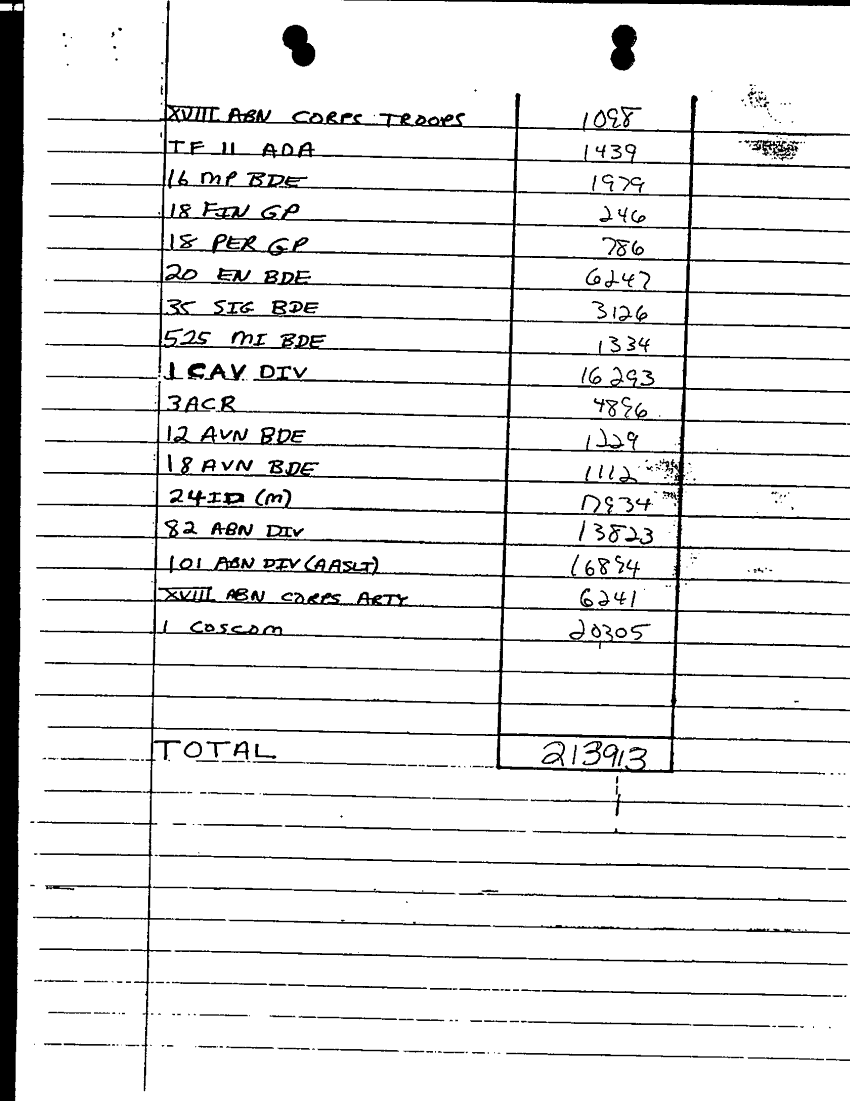 XVIII ABN CORPS TROOPS 1098
TF 11 ADA 1439
16 MP BDE 1979
18 FIN GP 246
18 PER GP 786
20 EN BDE 6247
35 SIG BDE 3126
525 MI BDE 1334
1 CAV DIV 16293
3ACR 4896
12 AVN BDE 1229
18 AVN BDE 1112
24ID (M)
82 ABN DIV 13823
101 ABN DIV (AASLT) 16894
XVIII ABN CORPS ARTY 6241
1 COSCOM 20305
TOTAL 213913